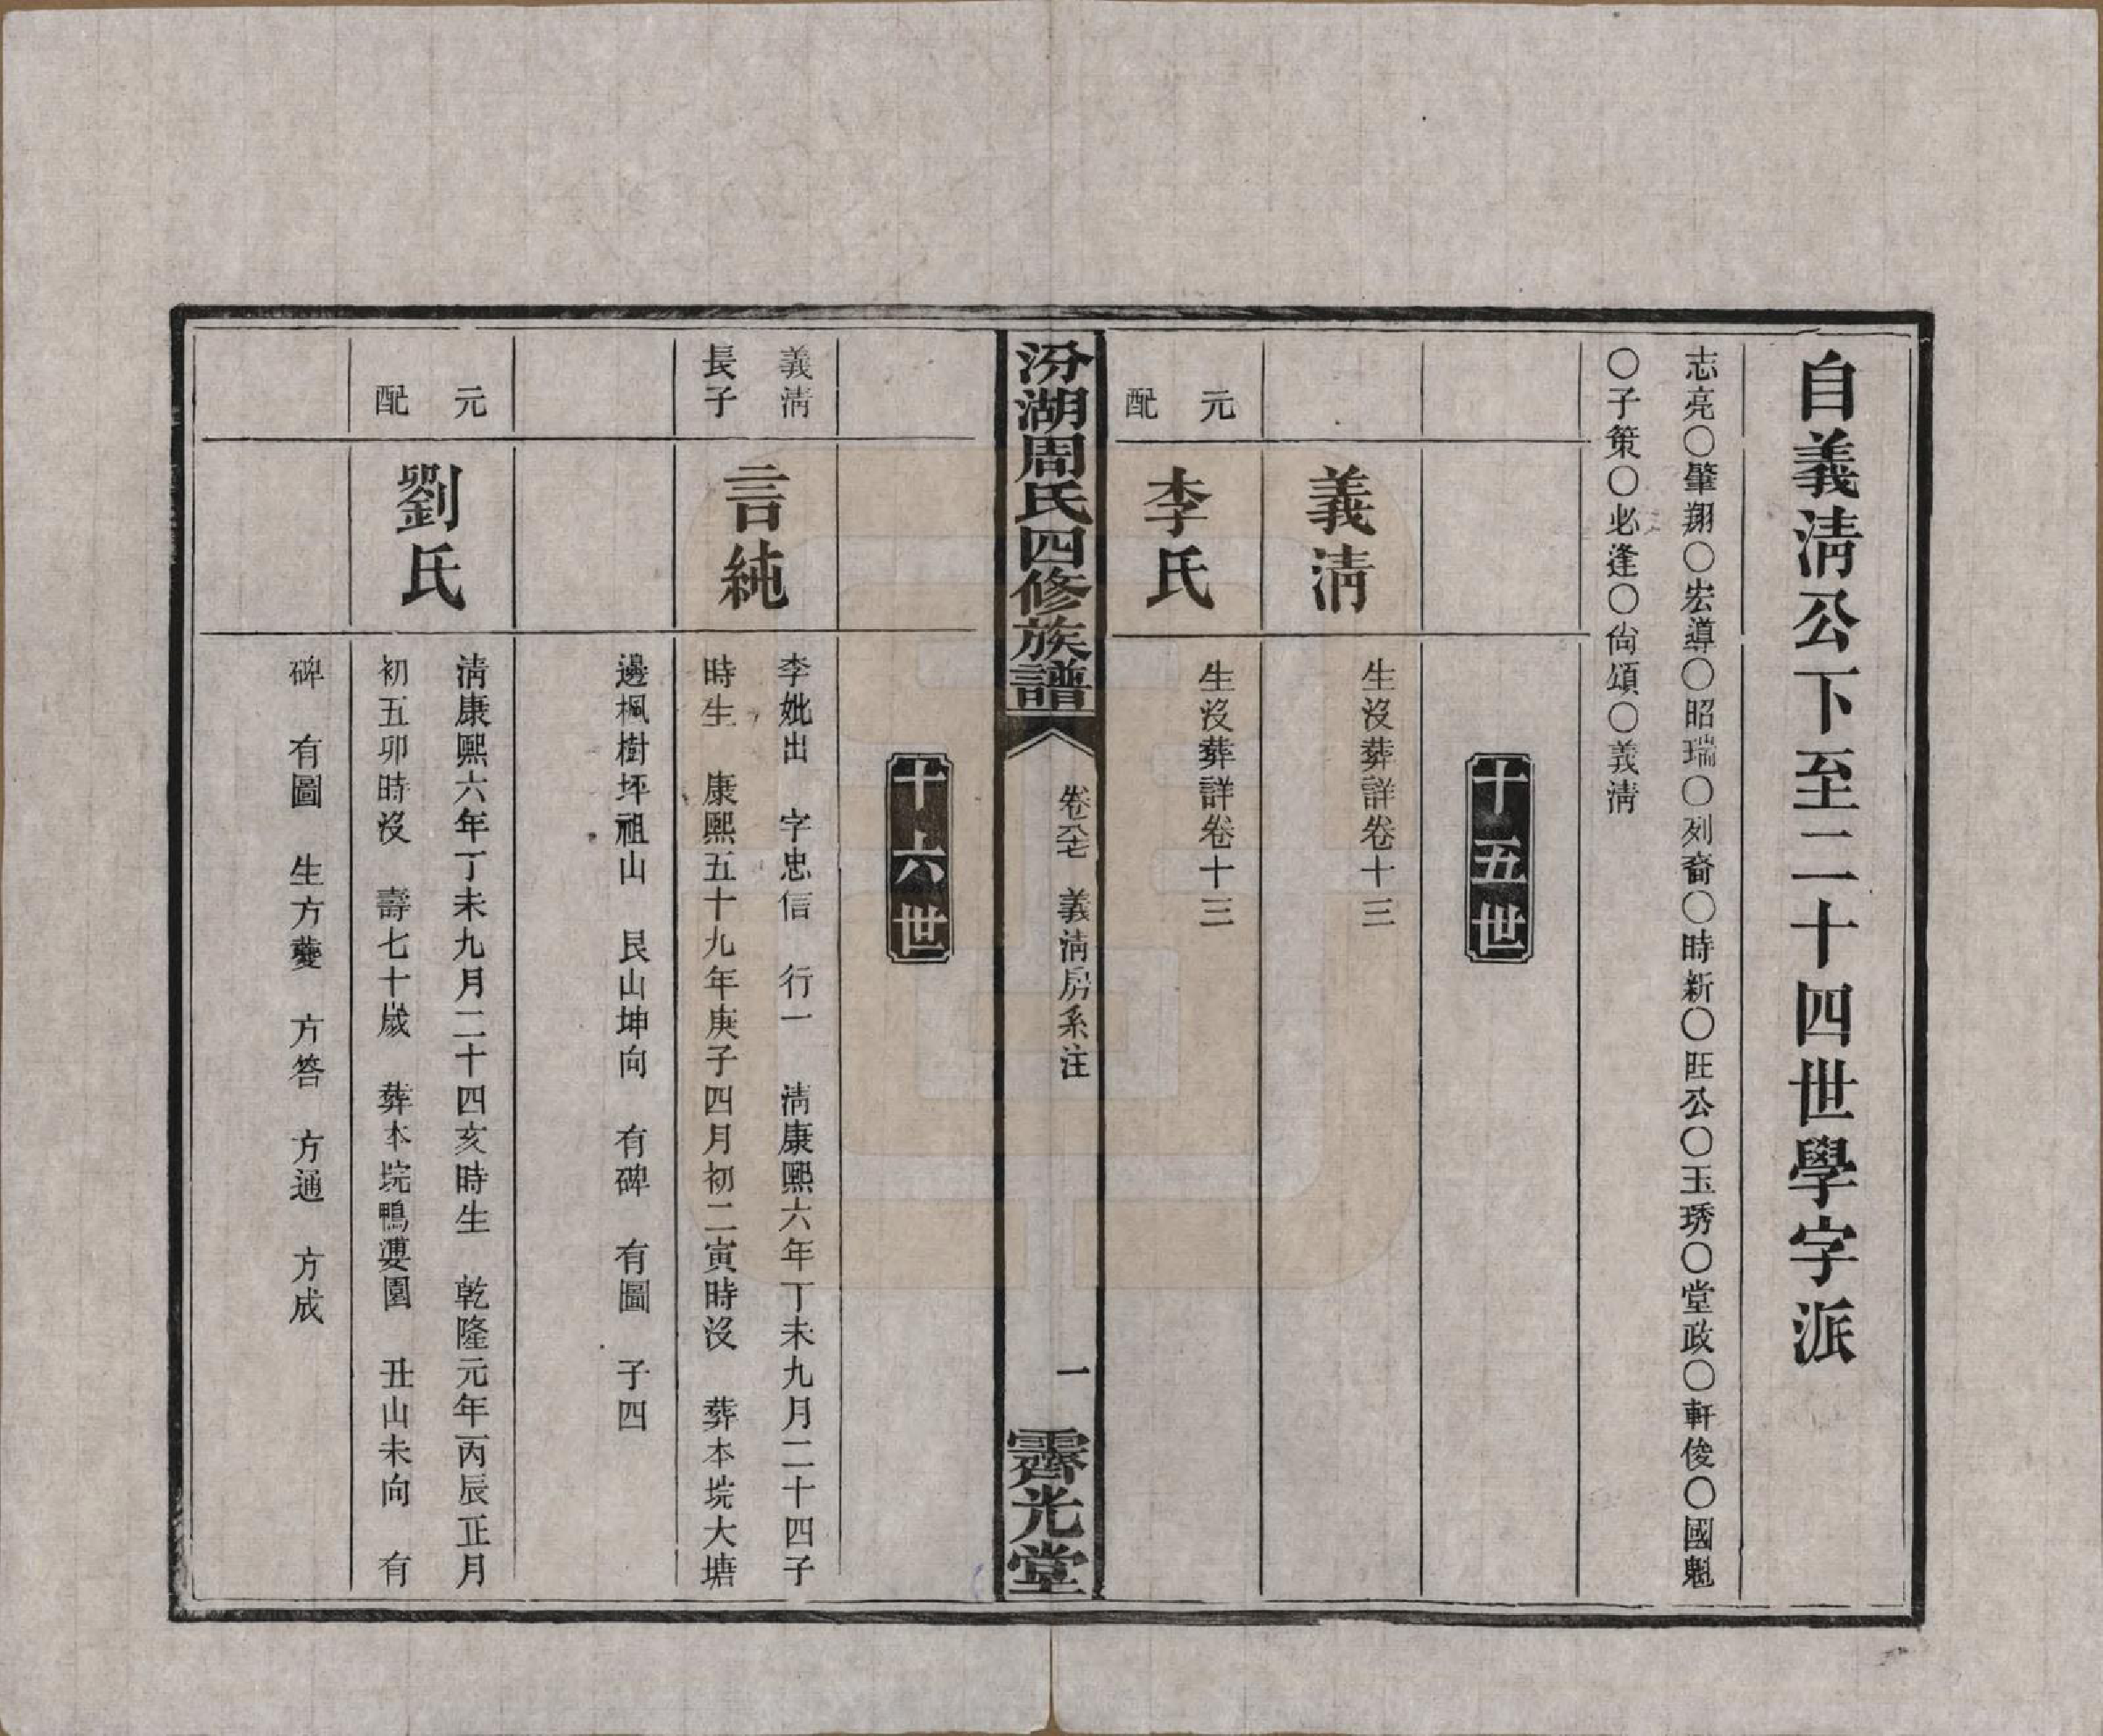 自義淸公下至二十四世學字派
志亮〇肇翔〇宏導〇昭瑞〇列裔〇時新〇旺公〇玉琇〇堂政〇軒俊〇國魁
〇子策〇必逢〇尙頌〇義淸
十五世
義淸
生沒葬詳卷十三
元配
李氏
生沒葬詳卷十三
汾湖周氏四修族譜
義淸房系注
一
霽光堂
十六世
義淸
長子
言純
李妣出 字忠信 行一 淸康熙六年丁未九月二十四子
時生 康熙五十九年庚子四月初二寅時沒 葬本垸大塘
邊楓樹坪祖山 艮山坤向 有碑 有圖 子四
元配
劉氏
淸康熙六年丁未九月二十四亥時生 乾隆元年丙辰正月
初五卯時沒 壽七十歲 葬本垸鴨婆園 丑山未向 有
碑 有圖 生方夔 方答 方通 方成